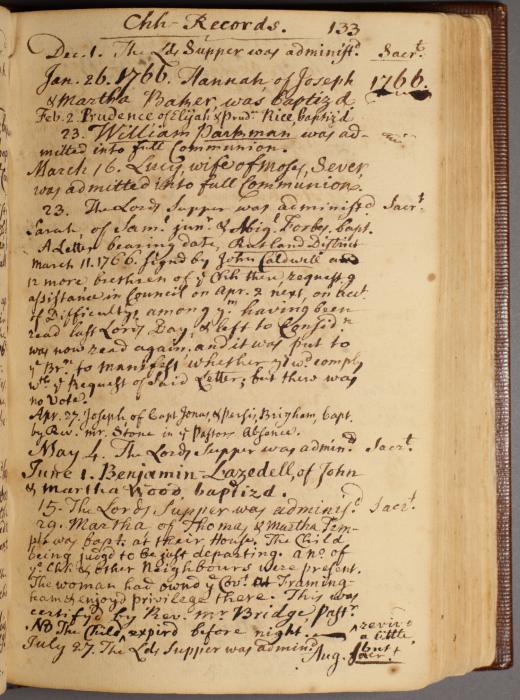 Chh Records. 133
Dec. 1. The Lds Supper was administd. Sacrt.
Jan. 26. 1766. Hannah, of Joseph 1766.
& Martha Baker, was baptiz'd
Feb. 2. Prudence of Elijah & Prude. Rice, baptiz'd
23. William Parkman was ad-
mitted into full Communion.
March 16. Lucy, wife of Moses, Sever
was admitted into full Communion.
23. The Lords Supper was administd. Sacrt.
Sarah, of Saml. junr. & Abigl. Forbes, bapt.
A Letter bearing date, Rutland District
March 11. 1766. Signd by John Caldwell and
12 more brethren of ye Chh there requestg
assistance in Council on Apr. 2 next, on acct.
of Difficultys among ym, having been
read last Lords Day, & left to Considn
was now read again, and it was put to
ye Brn. to manifest whether yy wd. comply
wth ye Request of said Letter; but there was
no Vote.
Apr. 27. Joseph of Capt Jonas, & Persis, Brigham, bapt.
by Rev. mr. Stone in ye Pastors Absence.
May 4. The Lords Supper was admind. Sacrt.
June 1. Benjamin Lazedell, of John
& Martha Wood, baptiz'd.
15. The Lords Supper was adminisd. Sacrt.
29. Martha of Thomas & Martha Tem-
ple was bapt. at their House. The Child
being judgd to be just departing. a no. of
ye Chh & other Neighbours were present.
The woman had ownd ye Covt. at Framing-
ham & enjoyd privilege there. This was
certify'd by Rev. mr Bridge, Pastr.
NB The Child expird before night. ^ reviv'd
a little,
but
July 27. The Lds Supper was admind.
Aug.